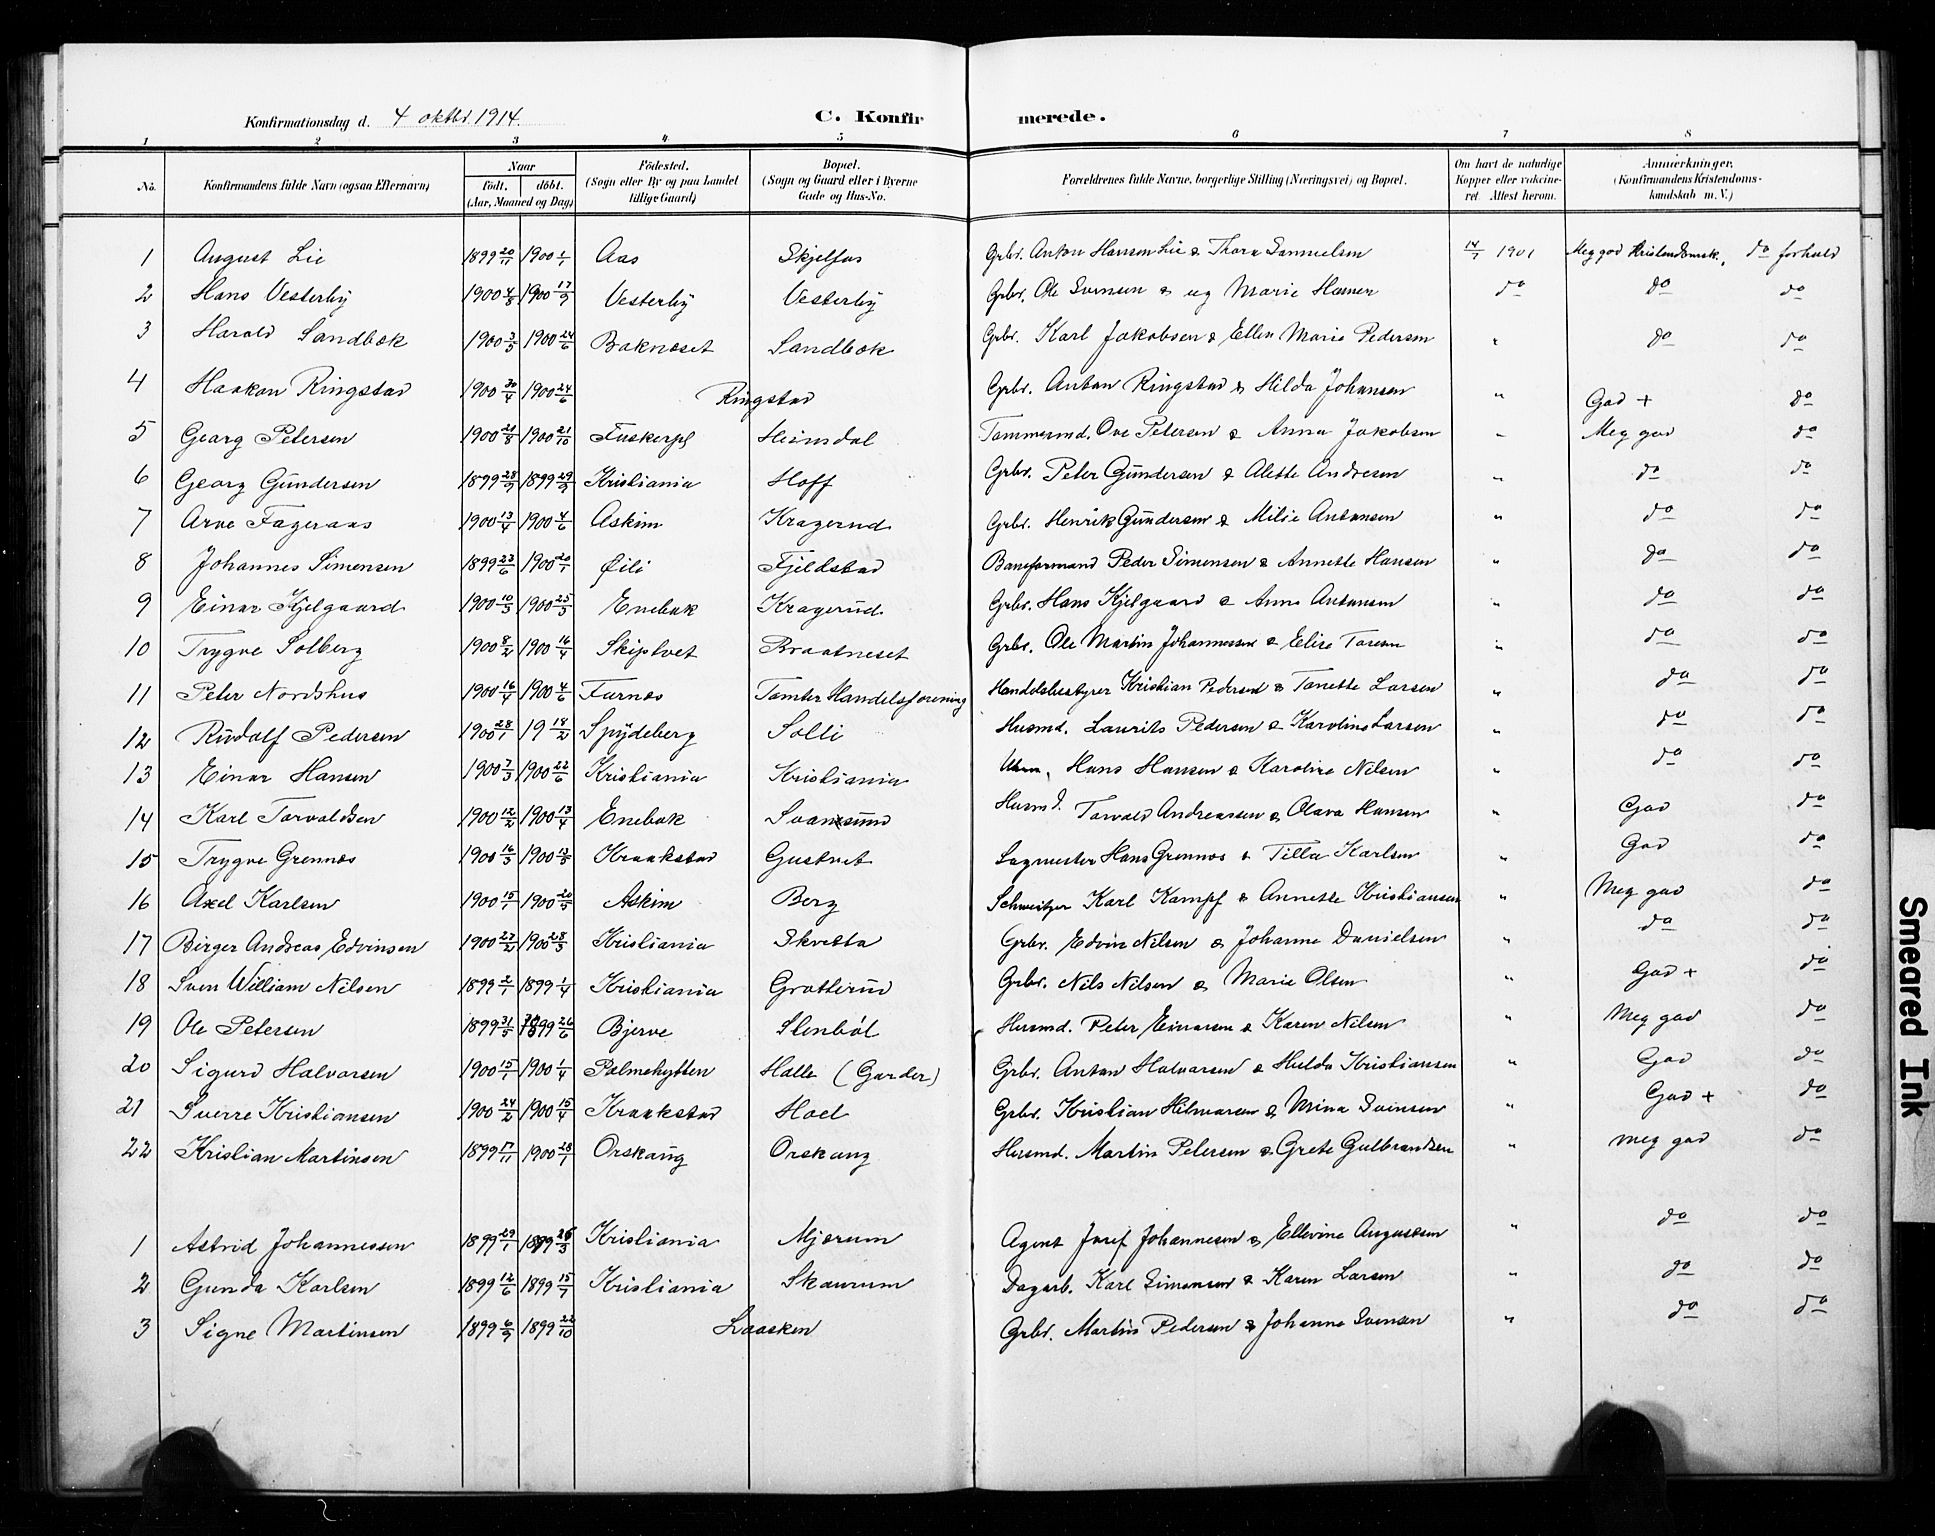 Konfirmationsdag d. 4 oktbr. 1914. C. Konfirmerede.
1 2 3 4 5 6 7 8
No. Konfirmandens fulde Navn (ogsaa Efternavn) Naar født. døbt. (Aar, Maaned og Dag) Fødested. (Sogn eller By og paa Landet tillige Gaard) Bopæl. (Sogn og Gaard eller i Byerne Gade og Hus-No. Forældrenes fulde Navne, borgerlige Stilling (Næringsvei) og Bopæl. Om havt de naturlige Kopper eller vakcineret. Attest herom. Anmærkninger. (Konfirmandens Kristendomskundskab m. V.)
1 August Lie 1899 20/11 1900 1/1 Aas Skjelfos Grbr. Anton Hansen Lie & Thora Samuelsen 14/7 1901 Meg god Kristendomsk. do forhold
2 Hans Vesterby 1900 4/8 1900 17/9 Vesterby Vesterby Grbr. Ole Svensen & ug Marie Hansen do do do
3 Harald Sandbæk 1900 3/5 1900 24/6 Baknæset Sandbæk Grbr. Karl Jakobsen & Ellen Marie Pedersen " do do
4 Haakon Ringstad 1900 30/4 1900 24/6 Ringstad Grbr. Anton Ringstad & Hilda Johansen " God + do
5 Georg Petersen 1900 21/8 1900 21/10 Fuskerpl Heimdal Tømmermd. Ove Petersen & Anna Jakobsen " Meg god do
6 Georg Gundersen 1899 28/7 1899 29/9 Kristiania Hoff Grbr. Peter Gundersen & Alette Andresen " do do
7 Arve Fageraas 1900 13/4 1900 4/6 Askim Kragerud Grbr. Henrik Gundersen & Milie Antonsen " do do
8 Johannes Simensen 1899 23/6 1900 20/1 Øili Fjeldstad Baneformand Peder Simensen & Annette Hansen " do do
9 Einar Kjelgaard 1900 10/3 1900 25/5 Enebak Kragerud Grbr. Hans Kjelgaard & Anna Antonsen " do do
10 Trygve Solberg 1900 8/2 1900 16/4 Skiptvet Braatneset Grbr. Ole Martin Johannessen & Elise Toresen " do do
11 Peter Nordshus 1900 16/4 1900 4/6 Furnes Tomter Handelsforening Handelsbestyrer Kristian Pedersen & Tonette Larsen " do do
12 Rudolf Pedersen 1900 28/1 19 18/2 Spydeberg Solli Husmd. Laurits Pedersen & Karoline Larsen " do do
13 Einar Hansen 1900 7/3 1900 22/6 Kristiania Kristiania Hans Hansen & Karoline Nilsen " do do
14 Karl Torvaldsen 1900 12/2 1900 13/4 Enebak Svansund Husmd. Torvald Andreassen & Olava Hansen " God do
15 Trygve Grennes 1900 16/3 1900 13/5 Kraakstad Gustvet Sagmester Hans Grennes & Tilla Karlsen " God do
16 Axel Karlsen 1900 15/1 1900 20/5 Askim Berg Schweitzer Karl Kampf & Annette Kristiansen " Meg god do
17 Birger Andreas Edvinsen 1900 23/2 1900 28/3 Kristiania Skvetta Grbr. Edvin Nilsen & Johanne Danielsen " do do
18 Sven William Nilsen 1899 2/1 1899 1/4 Kristiania Grøtterud Grbr. Nils Nilsen & Marie Olsen " God + do
19 Ole Petersen 1899 31/5 1899 26/6 Bjerve Stenbøl Husmd. Peter Einarsen & Karen Nilsen " Meg god do
20 Sigurd Halvorsen 1900 15/1 1900 1/4 Palmehytten Halle (Garder) Grbr. Anton Halvorsen & Hulda Kristiansen " God do
21 Sverre Kristiansen 1900 24/2 1900 15/4 Kraakstad Hoel Grbr. Kristian Hilmarsen & Mina Svensen " God + do
22 Kristian Martinsen 1899 17/11 1900 28/1 Orskaug Orskaug Husmd. Martin Petersen & Grete Gulbrandsen " Meg god do
1 Astrid Johannessen 1899 29/1 1899 26/3 Kristiania Mjærum Agent Josef Johannesen & Ellevine Augustsen " do do
2 Gunda Karlsen 1899 12/6 1899 15/7 Kristiania Skaurum Dagarb. Karl Simensen & Karen Larsen " do do
3 Signe Martinsen 1899 6/9 1899 22/10 Laasken Grbr. Martin Pedersen & Johanne Svensen " do do
Smeared Ink